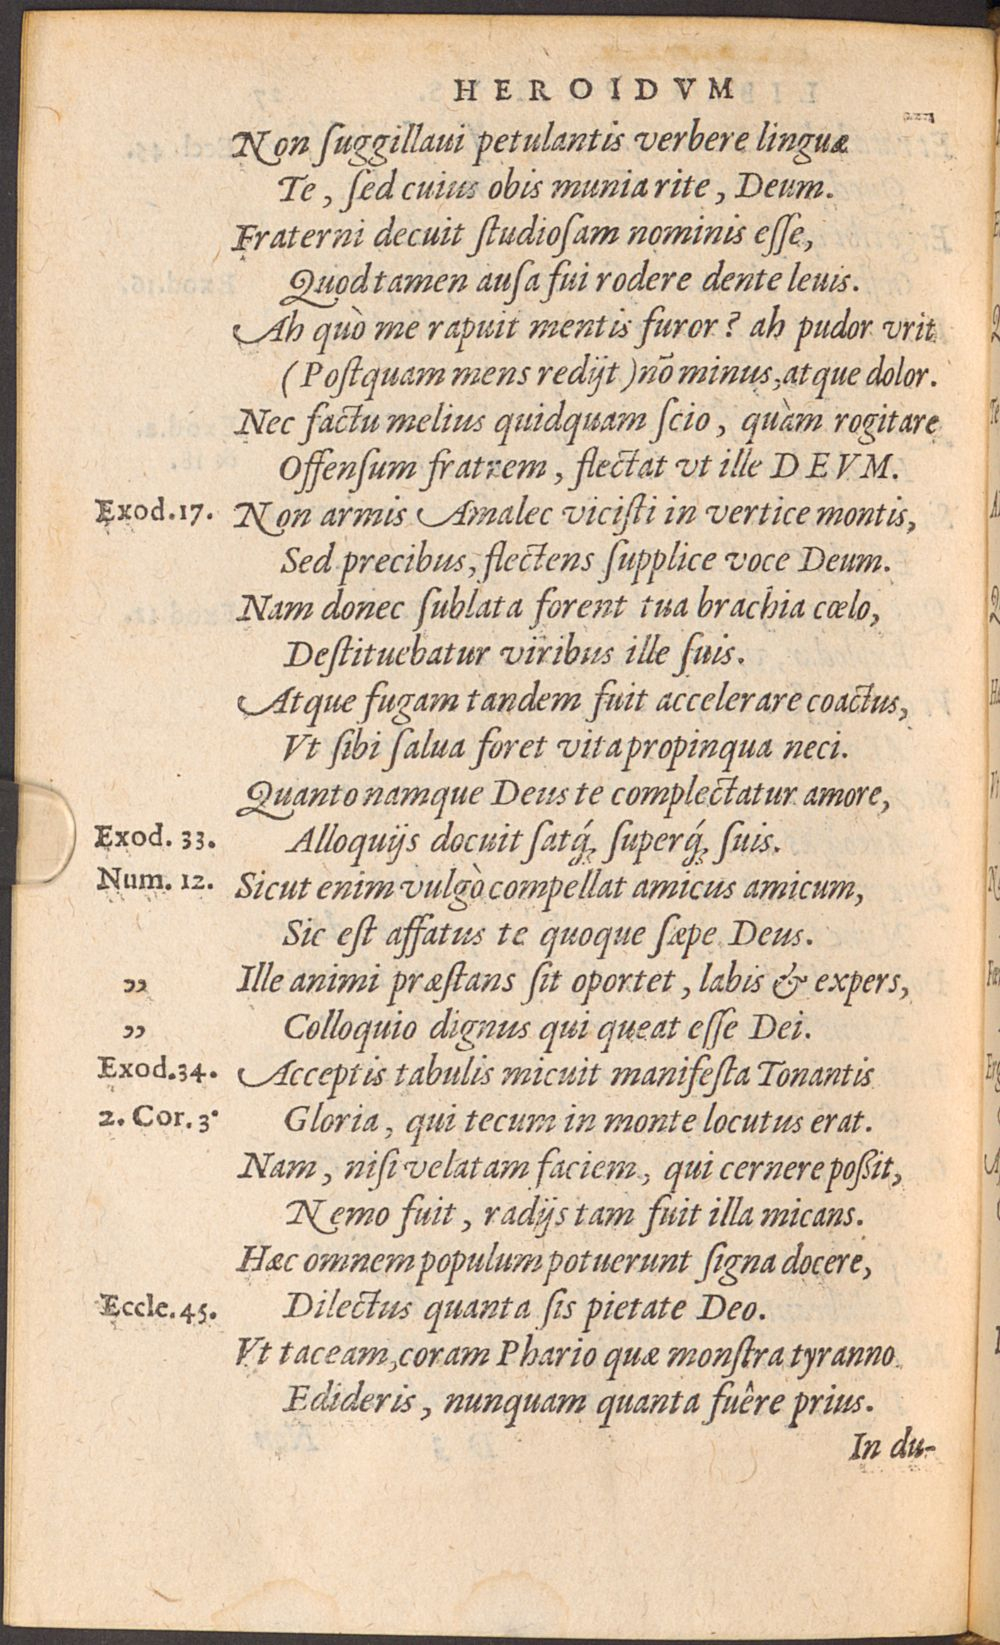 HEROIDVM
Non ſuggillaui petulantis verbere linguæ
Te, ſed cuius obis munia rite, Deum.
Fraterni decuit ſtudioſam nominis eſſe,
Quod tamen auſa fui rodere dente leuis.
Ah quò me rapuit mentis furor? ah pudor vrit
(Poſtquam mens redijt) nō minus, atque dolor.
Nec factu melius quidquam ſcio, quàm rogitare
Offenſum fratrem, flectat vt ille DEVM.
Exod.17. Non armis Amalec viciſti in vertice montis,
Sed precibus, flectens ſupplice voce Deum.
Nam donec ſublata forent tua brachia cœlo,
Deſtituebatur viribus ille ſuis.
Atque fugam tandem fuit accelerare coactus,
Vt ſibi ſalua foret vita propinqua neci.
Quanto namque Deus te complectatur amore,
Exod. 33. Alloquijs docuit ſatq́; ſuperq́; ſuis.
Num. 12. Sicut enim vulgò compellat amicus amicum,
Sic eſt affatus te quoque ſæpe Deus.
„ Ille animi præſtans ſit oportet, labis & expers,
„ Colloquio dignus qui queat eſſe Dei.
Exod.34. Acceptis tabulis micuit manifeſta Tonantis
2. Cor. 3. Gloria, qui tecum in monte locutus erat.
Nam, niſi velatam faciem, qui cernere poßit,
Nemo fuit, radijs tam fuit illa micans.
Hæc omnem populum potuerunt ſigna docere,
Eccle.45. Dilectus quanta ſis pietate Deo.
Vt taceam, coram Phario quæ monſtra tyranno
Edideris, nunquam quanta fuêre prius.
In du-